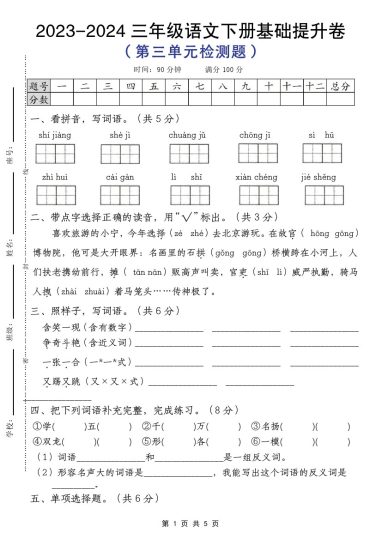 2023-2024三年级语文下册基础提升卷
（第三单元检测题）
时间：90分钟 满分100分
题号 一 二 三 四 五 六 七 八 九 十 十一 十二 总分
分数
一、看拼音，写词语。（共5分）
shī jiàng shè jì chuàng jǔ chōng jī sì hū
zhì huì cái gàn lì shǐ xiàn chéng jié shěng
二、带点字选择正确的读音，用“√”标出。（共3分）
喜欢旅游的小宁，今年选择（zé zhé）去北京游玩。在故宫（hōng gōng）
博物院，他可是大开眼界：名画里的石拱（gǒng gōng）桥横跨在小河上，人
们扶老携幼前行，摊（tàn nān）贩高声叫卖，官吏（shǐ lì）威严执勤，骑马
人拽（zhài zhuài）着马笼头……传神极了。
三、照样子，写词语。（共6分）
昙花一现（含有数字）
争奇斗艳（含近义词）
一张一合（一*一*式）
又踢又跳（又×又×式）
四、把下列词语补充完整，完成练习。（8分）
①学( )五( ) ②千( )万( ) ③名扬( )( )
④双龙( )( ) ⑤形( )各( ) ⑥一模( )( )
（1）词语 和 是一组反义词。
（2）形容名声大的词语是 ，我能写出这个词语的反义词是
。
五、单项选择题。（共6分）
第 1 页 共 5 页
座号：
姓名：
班级：
学校：
线
封
密